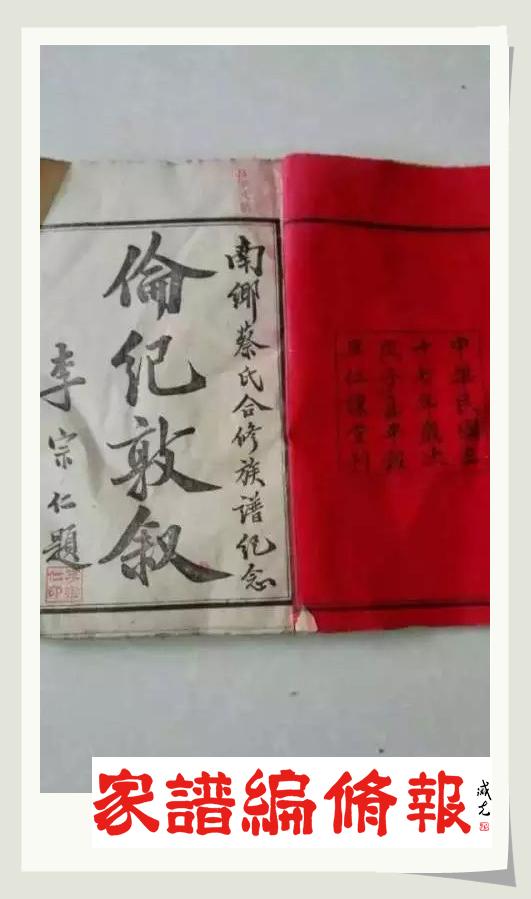 中華民國
十七年歲次
戊子
南鄉蔡氏合修族譜紀念
倫紀敦叙
李宗仁題
李宗仁印
家譜編脩報